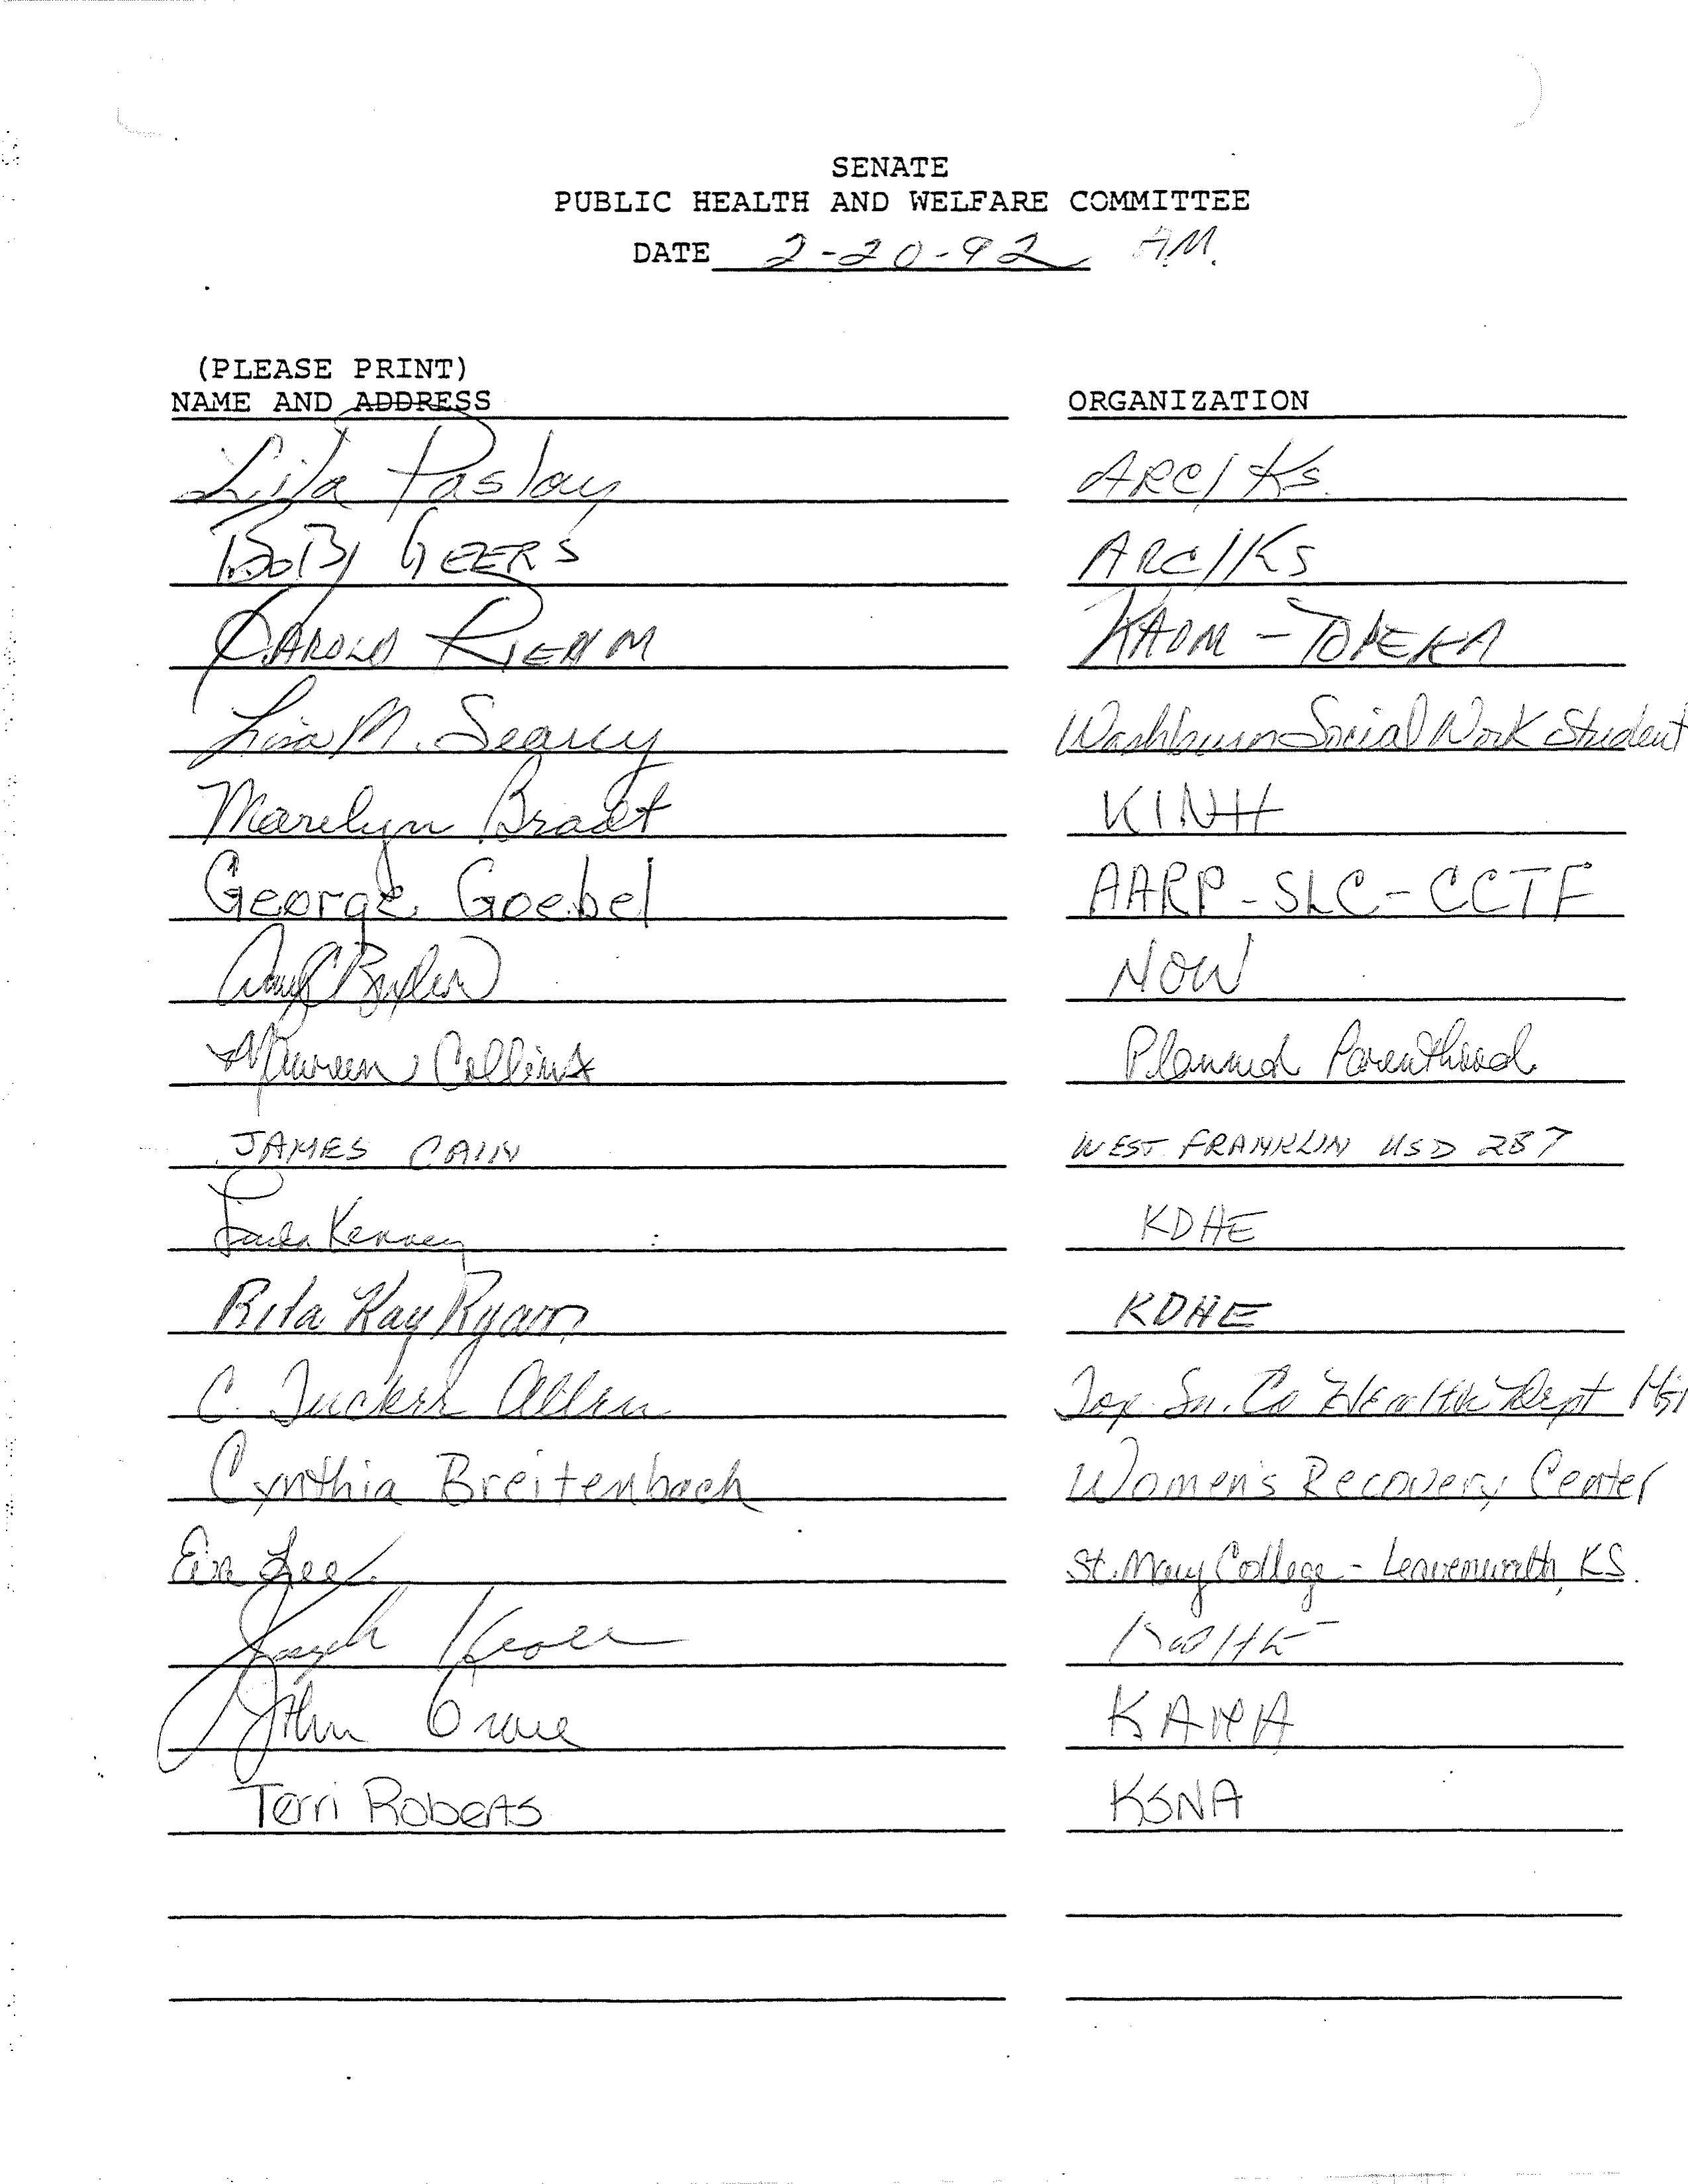 SENATE
PUBLIC HEALTH AND WELFARE COMMITTEE
DATE 2-20-92 A.M.
(PLEASE PRINT)
NAME AND ADDRESS ORGANIZATION
Lila Paslay ARC/Ks.
BOB GEERS ARC/KS
HAROLD RIEHM KAOM - TOPEKA
Lisa M. Searcy Washburn Social Work Student
Marilyn Bradt KINH
George Goebel AARP-SLC-CCTF
NOW
Maureen Collins Planned Parenthood
JAMES CAIN WEST FRANKLIN USD 287
Linda Kenney KDHE
Rita Kay Ryan KDHE
C. Tucker Allen Top. Sn. Co Health Dept
Cynthia Breitenbach Women's Recovery Center
Lee St. Mary College - Leavenworth, KS.
Joseph Kroll KDHE
John KAHA
Terri Roberts KSNA